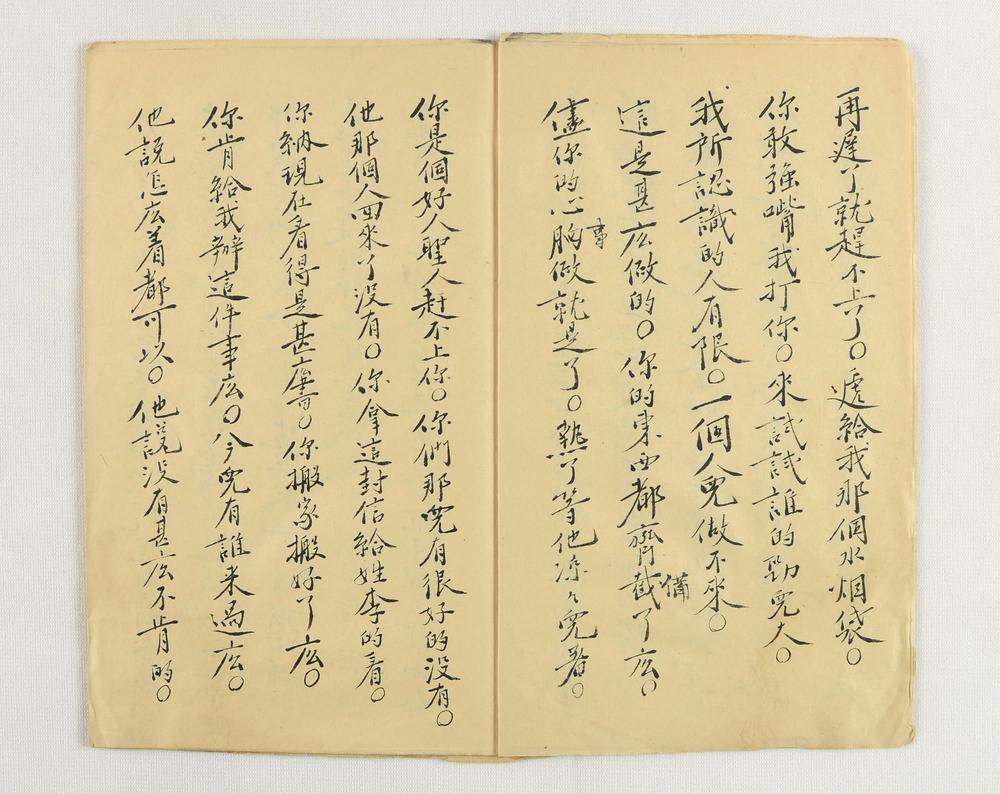 再遲了就趕不上了○遞給我那個水烟袋○
你敢強嘴我打你○來試試誰的勁兒大○
我所認識的人有限○一個人兒做不來○
這是甚広做的○你的東西都齊截了広○
備
儘你的心胸做就是了○熱了等他涼々兒着○
事
你是個好人聖人赶不上你○你們那兒有很好的沒有○
他那個人回來了沒有○你拿這封信給姓李的看○
你納現在看得是甚広書○你搬家搬好了広○
你肯給我辦這件事広○今兒有誰来過広○
他說怎広着都可以○他說沒有甚広不肯的○